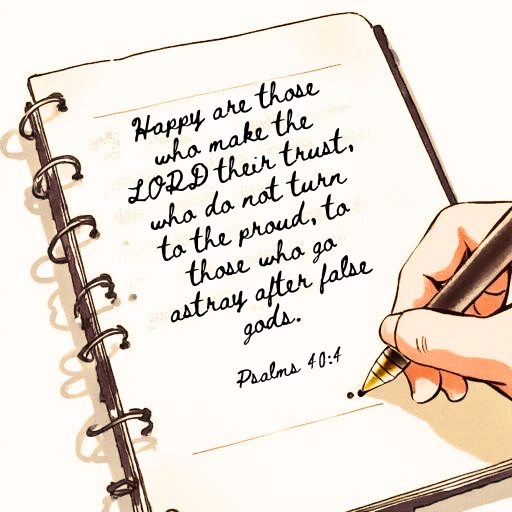 Happy are those
who make the
LORD their trust,
who do not turn
to the proud, to
those who go
astray after false
gods.
Psalms 40:4